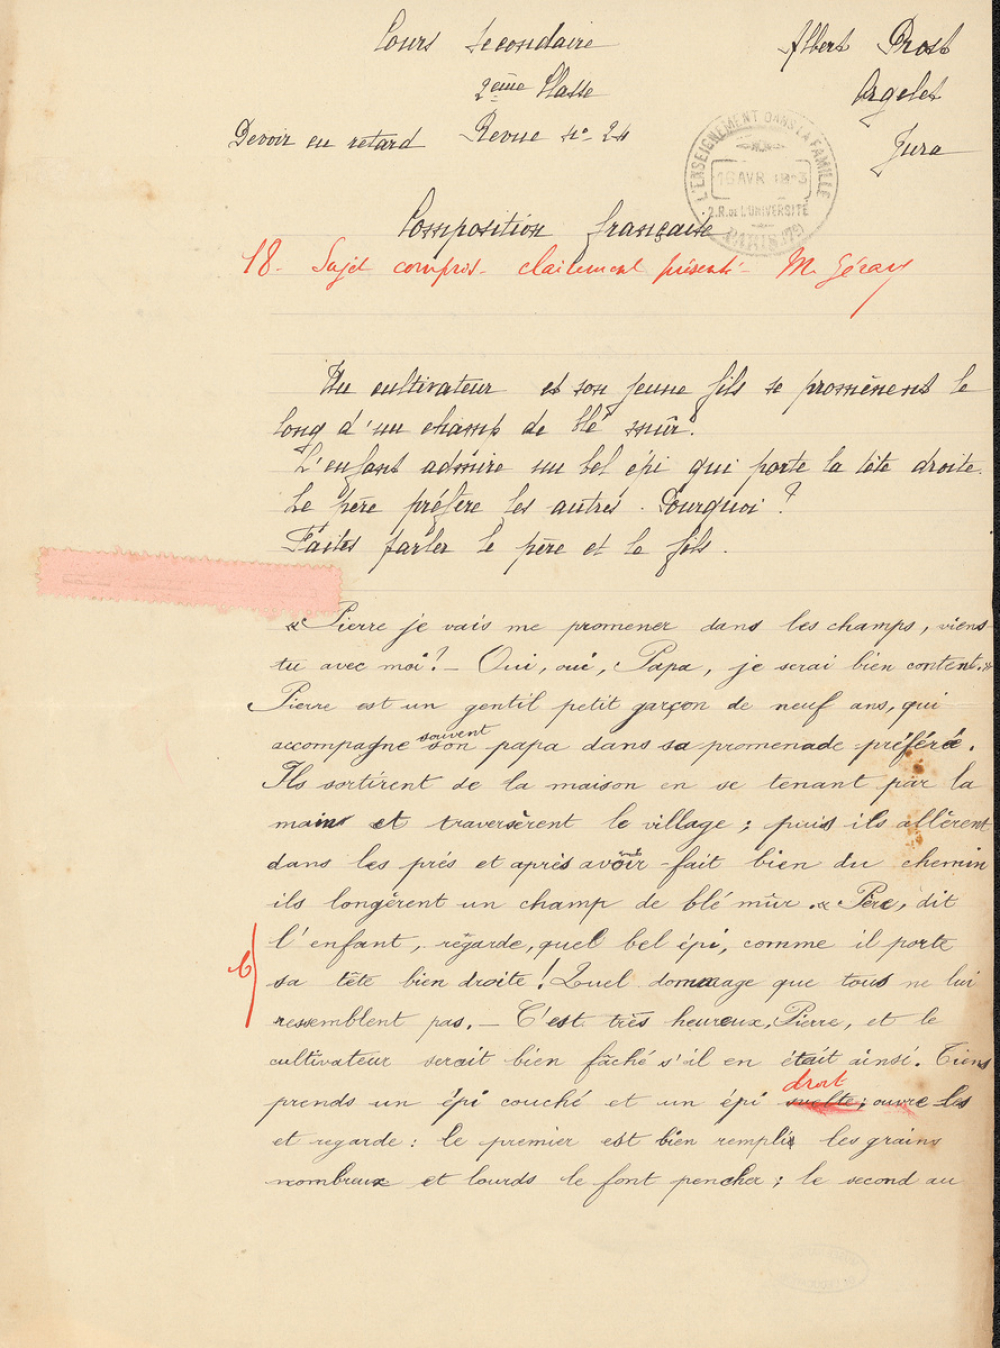 Cours secondaire
Albert Prost
2ème Classe
Orgelet
Devoir en retard Revue No 24
Jura
L'ENSEIGNEMENT DANS LA FAMILLE
16 AVR
2.R. DE L'UNIVERSITÉ
PARIS
Composition française
18. Sujet compris. clairement présenté. M. Géray
Un cultivateur et son jeune fils se promènent le
long d'un champ de blé mûr.
L'enfant admire un bel épi qui porte la tête droite.
Le père préfère les autres. Pourquoi ?
Faites parler le père et le fils.
« Pierre je vais me promener dans les champs, viens-
tu avec moi? — Oui, oui, Papa, je serai bien content. »
Pierre est un gentil petit garçon de neuf ans, qui
accompagne souvent son papa dans sa promenade préférée.
Ils sortirent de la maison en se tenant par la
main et traversèrent le village ; puis ils allèrent
dans les prés et après avoir fait bien du chemin
ils longèrent un champ de blé mûr. « Père, dit
l'enfant, regarde, quel bel épi, comme il porte
sa tête bien droite ! Quel dommage que tous ne lui
ressemblent pas. — C'est très heureux, Pierre, et le
cultivateur serait bien fâché s'il en était ainsi. Tiens
droit
prends un épi couché et un épi svelte ; ouvre les
et regarde : le premier est bien rempli les grains
nombreux et lourds le font pencher ; le second au